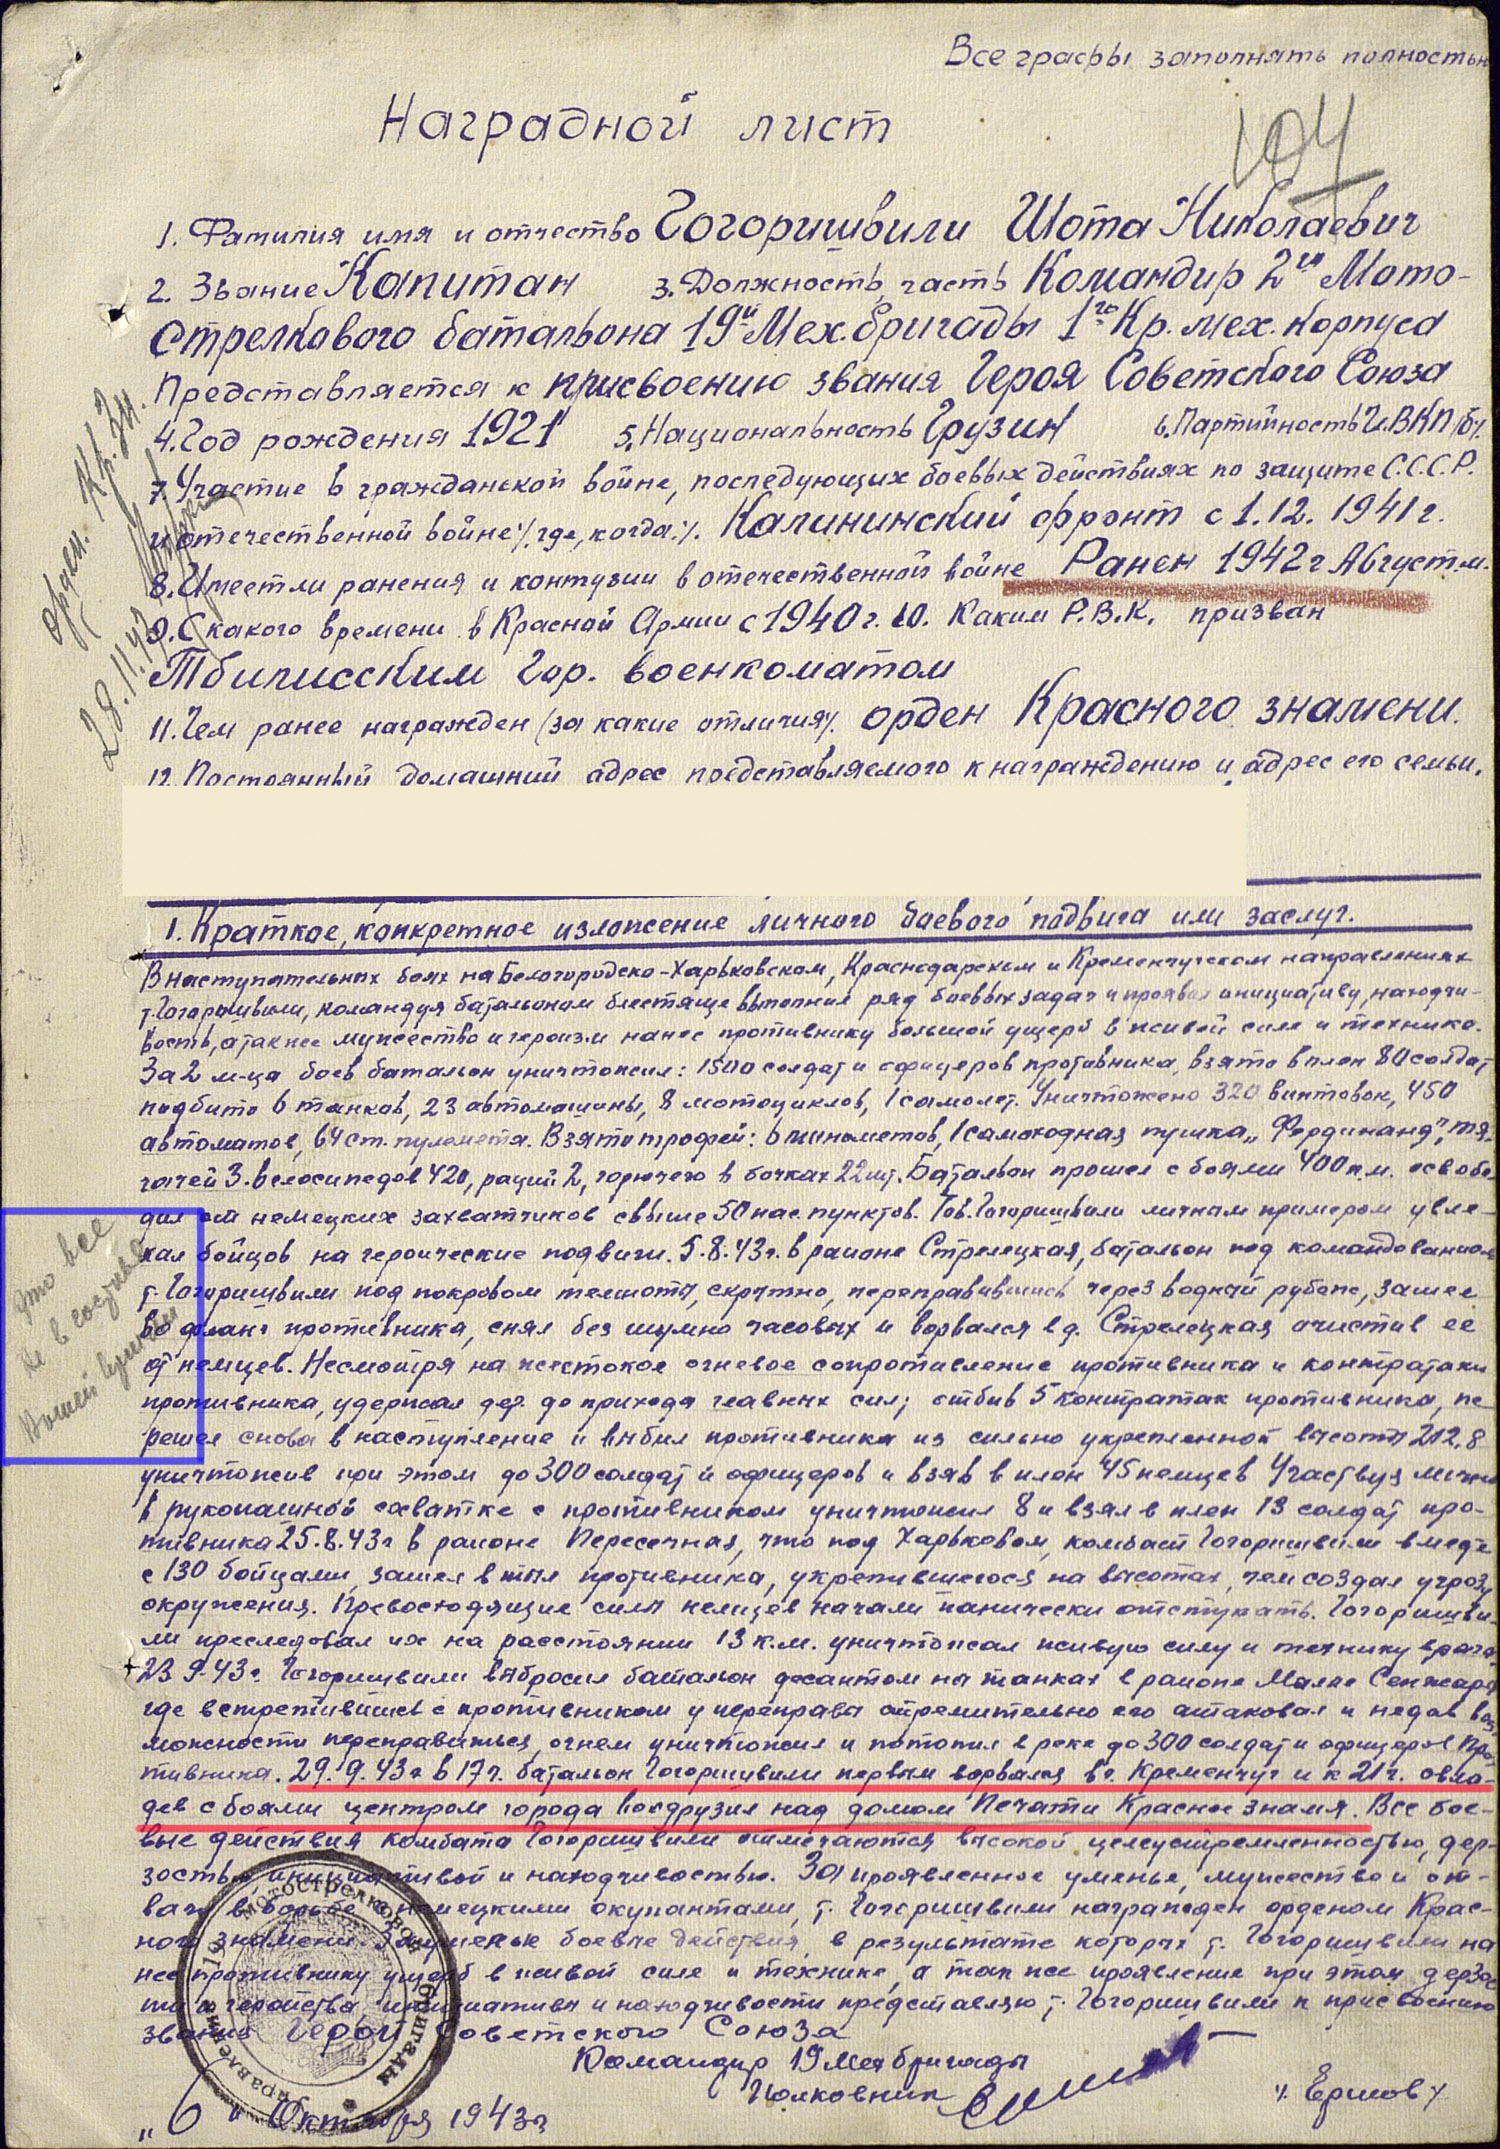 Все графы заполнять полностью
104
Наградной лист
1. Фамилия имя и отчество Гогоришвили Шота Николаевич
2. Звание Капитан 3. Должность, часть Командир 2ГО Мото-
стрелкового батальона 19й Мех. бригады 1го Кр. мех. корпуса
Представляется к присвоению звания Героя Советского Союза
4. Год рождения 1921 5. Национальность Грузин 6. Партийность Чл. ВКП/б/.
7. Участие в гражданской войне, последующих боевых действиях по защите С.С.С.Р.
и отечественной войне /. где, когда./. Калининский фронт с 1.12.1941 г.
8. Имеет ли ранения и контузии в отечественной войне Ранен 1942 г Август м.
9. С какого времени в Красной Армии с 1940 г. 10. Каким Р.В.К. призван
Тбилисским Гор. военкоматом
11. Чем ранее награжден (за какие отличия/. орден Красного знамени.
12. Постоянный домашний адрес представляемого к награждению и адрес его семьи.
орден. Кр. Зн.
28.11.43
1. Краткое, конкретное изложение личного боевого подвига или заслуг.
В наступательных боях на Белогородско-Харьковском, Краснодарском и Кременчугском направлениях
т. Гогоришвили, командуя батальоном блестяще выполнил ряд боевых задач и проявил инициативу, находчи-
вость, а также мужество и героизм нанес противнику большой ущерб в живой силе и технике.
За 2 м-ца боев батальон уничтожил: 1500 солдат и офицеров противника, взято в плен 80 солдат
подбито 6 танков, 23 автомашины, 8 мотоциклов, 1 самолет. Уничтожено 320 винтовок, 450
автоматов, 64 ст. пулемета. Взято трофей: 6 минометов, 1 самоходная пушка „Фердинанд", тя-
гачей 3. велосипедов 420, раций 2, горючего в бочках 22 шт. Батальон прошел с боями 400 к.м. освобо-
дил от немецких захватчиков свыше 50 нас. пунктов. Тов. Гогоришвили личным примером увле-
кал бойцов на героические подвиги. 5.8.43 г. в районе Стрелецкая, батальон под командованием
т. Гогоришвили под покровом темноты, скрытно, переправившись через водный рубеж, зашел
во фланг противника, снял без шумно часовых и ворвался в д. Стрелецкая очистив ее
от немцев. Несмотря на жестокое огневое сопротивление противника и контратаки
противника, удержал дер. до прихода главных сил; отбив 5 контратак противника, пе
решел снова в наступление и выбил противника из сильно укрепленной высоты 212.8
уничтожив при этом до 300 солдат и офицеров и взяв в плен 45 немцев Участвуя лично
в рукопашной схватке с противником уничтожил 8 и взял в плен 13 солдат про-
тивника 25.8.43 г в районе Пересечная, что под Харьковом, комбат Гогоришвили вместе
с 130 бойцами, зашел в тыл противника, укрепившегося на высотах, чем создал угрозу
окружения. Превосходящие силы немцев начали панически отступать. Гогоришви-
ли преследовал их на расстоянии 13 к.м. уничтожал живую силу и технику врага.
23.9.43 г. Гогоришвили выбросил батальон десантом на танках в районе Малые Сенжары
где встретившись с противником у переправы стремительно его атаковал и не дав воз
можности переправиться, огнем уничтожил и потопил в реке до 300 солдат и офицеров про
тивника. 29.9.43 г в 17 ч. батальон Гогоришвили первым ворвался в г. Кременчуг и к 21 ч. овла-
дев с боями центром города водрузил над домом Печати Красное знамя. Все бое-
вые действия комбата Гогоришвили отмечаются высокой целеустремленностью, дер-
зостью, инициативой и находчивостью. За проявленное уменье, мужество и от-
вагу в борьбе с немецкими окупантами, т. Гогоришвили награжден орденом Крас-
ного знамени. За уменье боевые действия, в результате которых т. Гогоришвили на
нес противнику ущерб в живой силе и технике, а так же проявление при этом дерзос
ти и геройства инициативы и находчивости представляю т. Гогоришвили к присвоению
звания Герой Советского Союза
Это все
не в составе
нашей
Командир 19 мех бригады
Полковник /. Ершов /
„6" Октября 1943 г
Управление 19 мотострелковой бригады